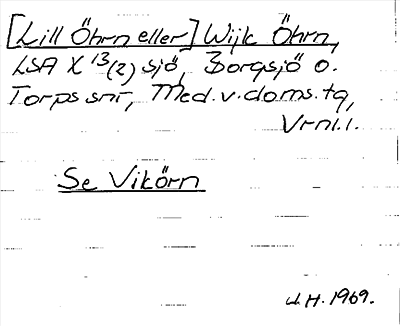 [Lill Öhrn eller] Wijk Öhrn,
LSA X 13/(2) sjö, Borgsjö o.
Torps snr, Med.v.doms.tg,
Vrnl.l.
Se Vikörn
J.H. 1969.